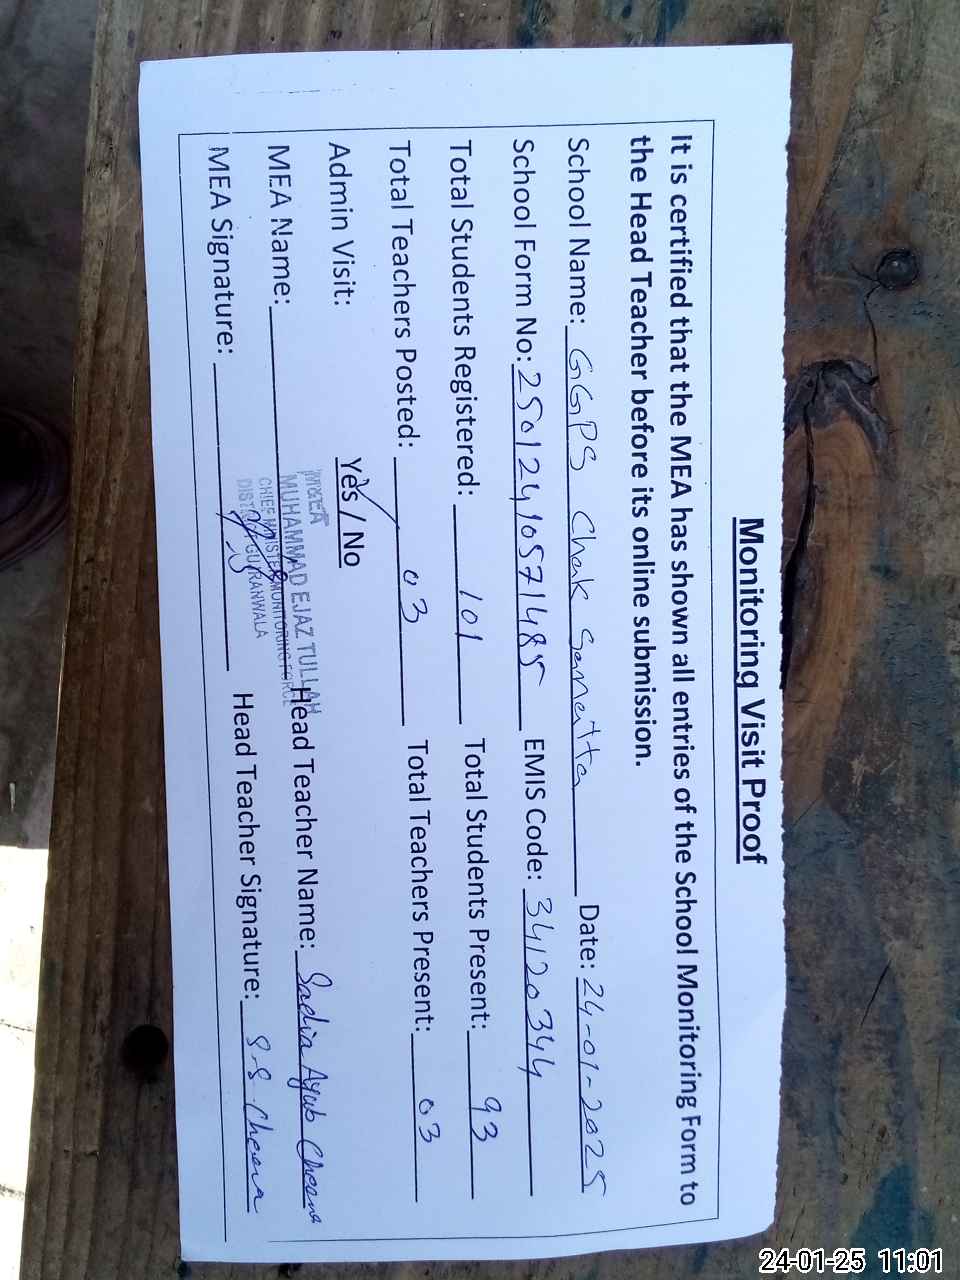 Monitoring Visit Proof
It is certified that the MEA has shown all entries of the School Monitoring Form to
the Head Teacher before its online submission.
School Name: GGPS Chak Date: 24-01-2025
School Form No: 25012410571485 EMIS Code: 34120344
Total Students Registered: 101 Total Students Present: 93
Total Teachers Posted: 03 Total Teachers Present: 03
Admin Visit: Yes / No
M&EA
MUHAMMAD EJAZ TULLAH
CHIEF MINISTER MONITORING FORCE
DISTRICT GUJRANWALA
MEA Name: Head Teacher Name: Sadia Ayub Cheema
MEA Signature: Head Teacher Signature: S-S-Cheema
24-01-25 11:01